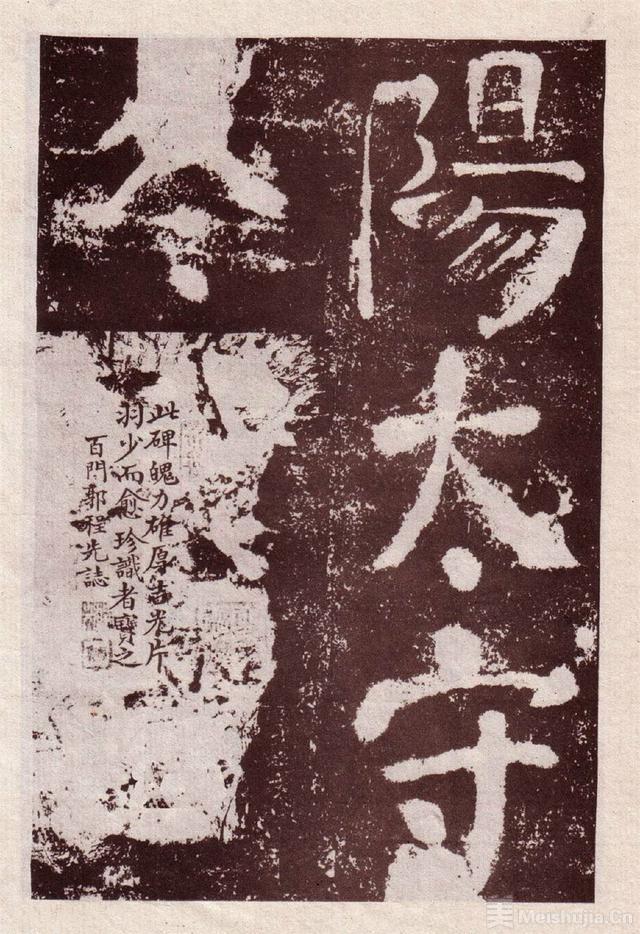 陽太守
此碑魄力雄厚吉光片
羽少而愈珍識者寶之
百門郭程先誌
美 Meishujia.Cn